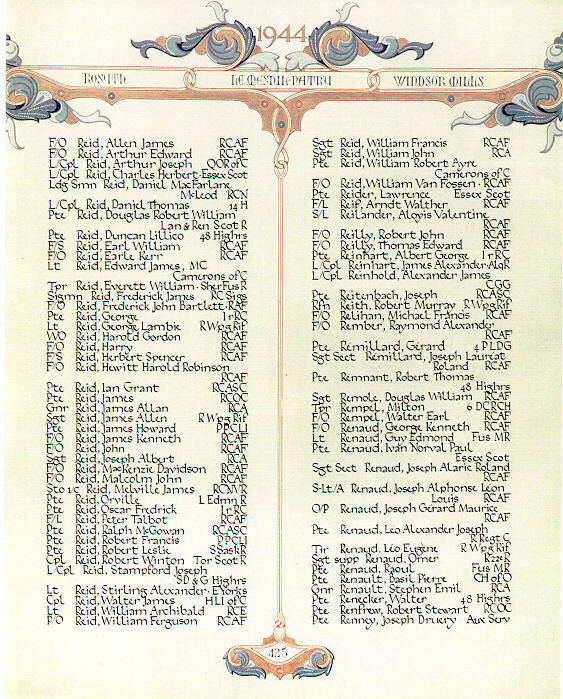 1944
ROSYTH LE MESNIL-PATRY WINDSOR MILLS
F/O Reid, Allen James RCAF
F/O Reid, Arthur Edward RCAF
L/Cpl Reid, Arthur Joseph QOR of C
L/Cpl Reid, Charles Herbert·Essex Scot
Ldg Smn Reid, Daniel MacFarlane
McLeod RCN
L/Cpl Reid, Daniel Thomas 14 H
Pte Reid, Douglas Robert William
Lan & Ren Scot R
Pte Reid, Duncan Lillico 48 Highrs
F/S Reid, Earl William RCAF
F/O Reid, Earle Kerr RCAF
Lt Reid, Edward James, MC
Camerons of C
Tpr Reid, Everett William·Sher Fus R
Sigmn Reid, Frederick James RC Sigs
F/O Reid, Frederick John Bartlett·RAF
Pte Reid, George Ir RC
Lt Reid, George Lambie R Wpg Rif
WO Reid, Harold Gordon RCAF
F/O Reid, Harry RCAF
F/S Reid, Herbert Spencer RCAF
F/O Reid, Hewitt Harold Robinson
RCAF
Pte Reid, Ian Grant RCASC
Pte Reid, James RCOC
Gnr Reid, James Allan RCA
Sgt Reid, James Allen R Wpg Rif
Pte Reid, James Howard PPCLI
F/O Reid, James Kenneth RCAF
F/O Reid, John RCAF
Sgt Reid, Joseph Albert RCA
F/O Reid, MacKenzie Davidson RCAF
F/O Reid, Malcolm John RCAF
Sto 1/c Reid, Melville James RCNVR
Pte Reid, Orville L Edmn R
Pte Reid, Oscar Fredrick Ir RC
F/L Reid, Peter Talbot RCAF
Pte Reid, Ralph McGowan RCASC
Pte Reid, Robert Francis PPCLI
Pte Reid, Robert Leslie S Sask R
Cpl Reid, Robert Winton Tor Scot R
L/Cpl Reid, Stampford Joseph
SD & G Highrs
Lt Reid, Stirling Alexander·E Yorks
Cpl Reid, Walter James HLI of C
Lt Reid, William Archibald RCE
P/O Reid, William Ferguson RCAF
Sgt Reid, William Francis RCAF
Sgt Reid, William John RCA
Pte Reid, William Robert Ayre
Camerons of C
F/O Reid, William Van Fossen·RCAF
Pte Reider, Lawrence Essex Scot
F/L Reif, Arndt Walther RCAF
S/L Reilander, Aloyis Valentine
RCAF
F/O Reilly, Robert John RCAF
F/O Reilly, Thomas Edward RCAF
Pte Reinhart, Albert George Ir RC
L/Cpl Reinhart, James Alexander·Alq R
L/Cpl Reinhold, Alexander James
CGG
Pte Reitenbach, Joseph RCASC
Rfn Reith, Robert Murray R Wpg Rif
F/O Relihan, Michael Francis RCAF
F/O Rember, Raymond Alexander
RCAF
Pte Remillard, Gérard 4 PLDG
Sgt Sect Remillard, Joseph Lauréat
Roland RCAF
Pte Remnant, Robert Thomas
48 Highrs
Sgt Remole, Douglas William RCAF
Tpr Rempel, Milton 6 DCRCH
F/O Rempel, Walter Earl RCAF
F/O Renaud, George Kenneth RCAF
Lt Renaud, Guy Edmond Fus MR
Pte Renaud, Ivan Norval Paul
Essex Scot
Sgt Sect Renaud, Joseph Alaric Roland
RCAF
S-Lt/A Renaud, Joseph Alphonse Léon
Louis RCAF
O/P Renaud, Joseph Gérard Maurice
RCAF
Pte Renaud, Léo Alexander Joseph
R Regt C
Tir Renaud, Léo Eugène R Wpg Rif
Sgt supp Renaud, Omer R22eR
Pte Renaud, Raoul Fus MR
Pte Renault, Basil Pierre CH of O
Gnr Renault, Stephen Emil RCA
Pte Renecker, Walter 48 Highrs
Pte Renfrew, Robert Stewart RCOC
Pte Renney, Joseph Druery Aux Serv
425